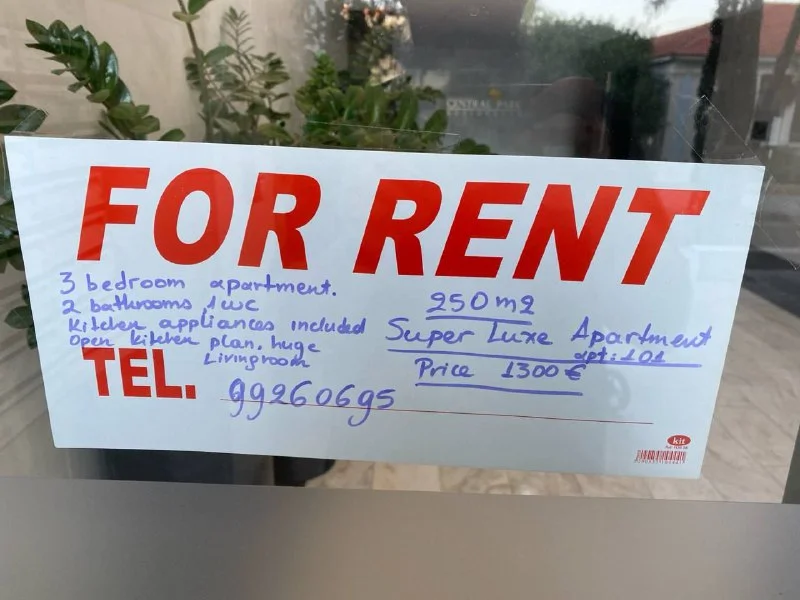 FOR RENT
3 bedroom apartment.
2 bathrooms 1wc
Kitchen appliances included
Open kitchen plan. huge
Livingroom
250m2
Super Luxe Apartment
apt:101
Price 1300€
TEL. 99260695
kit